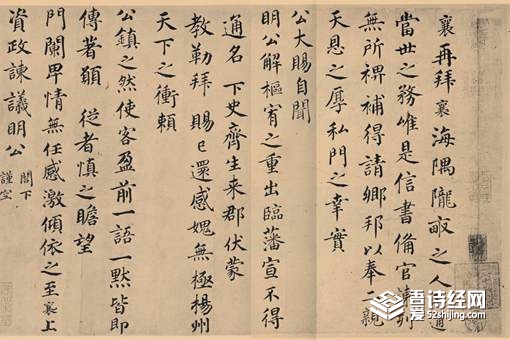 襄再拜襄海隅隴畝之人通
當世之務唯是信書備官諫列
無所裨補得請鄉邦以奉二親
天恩之厚私門之幸實
公大賜自聞
明公解樞宥之重出臨藩宣不得
通名 下史齊生來郡伏蒙
教勒拜 賜已還感媿無極楊州
天下之衝賴
公鎮之然使客盈前一語一默皆即
傳著願 從者慎之瞻望
門闌卑情無任感激傾依之至襄上
資政諫議明公 閤下
謹空
吾诗经网
52shijing.com